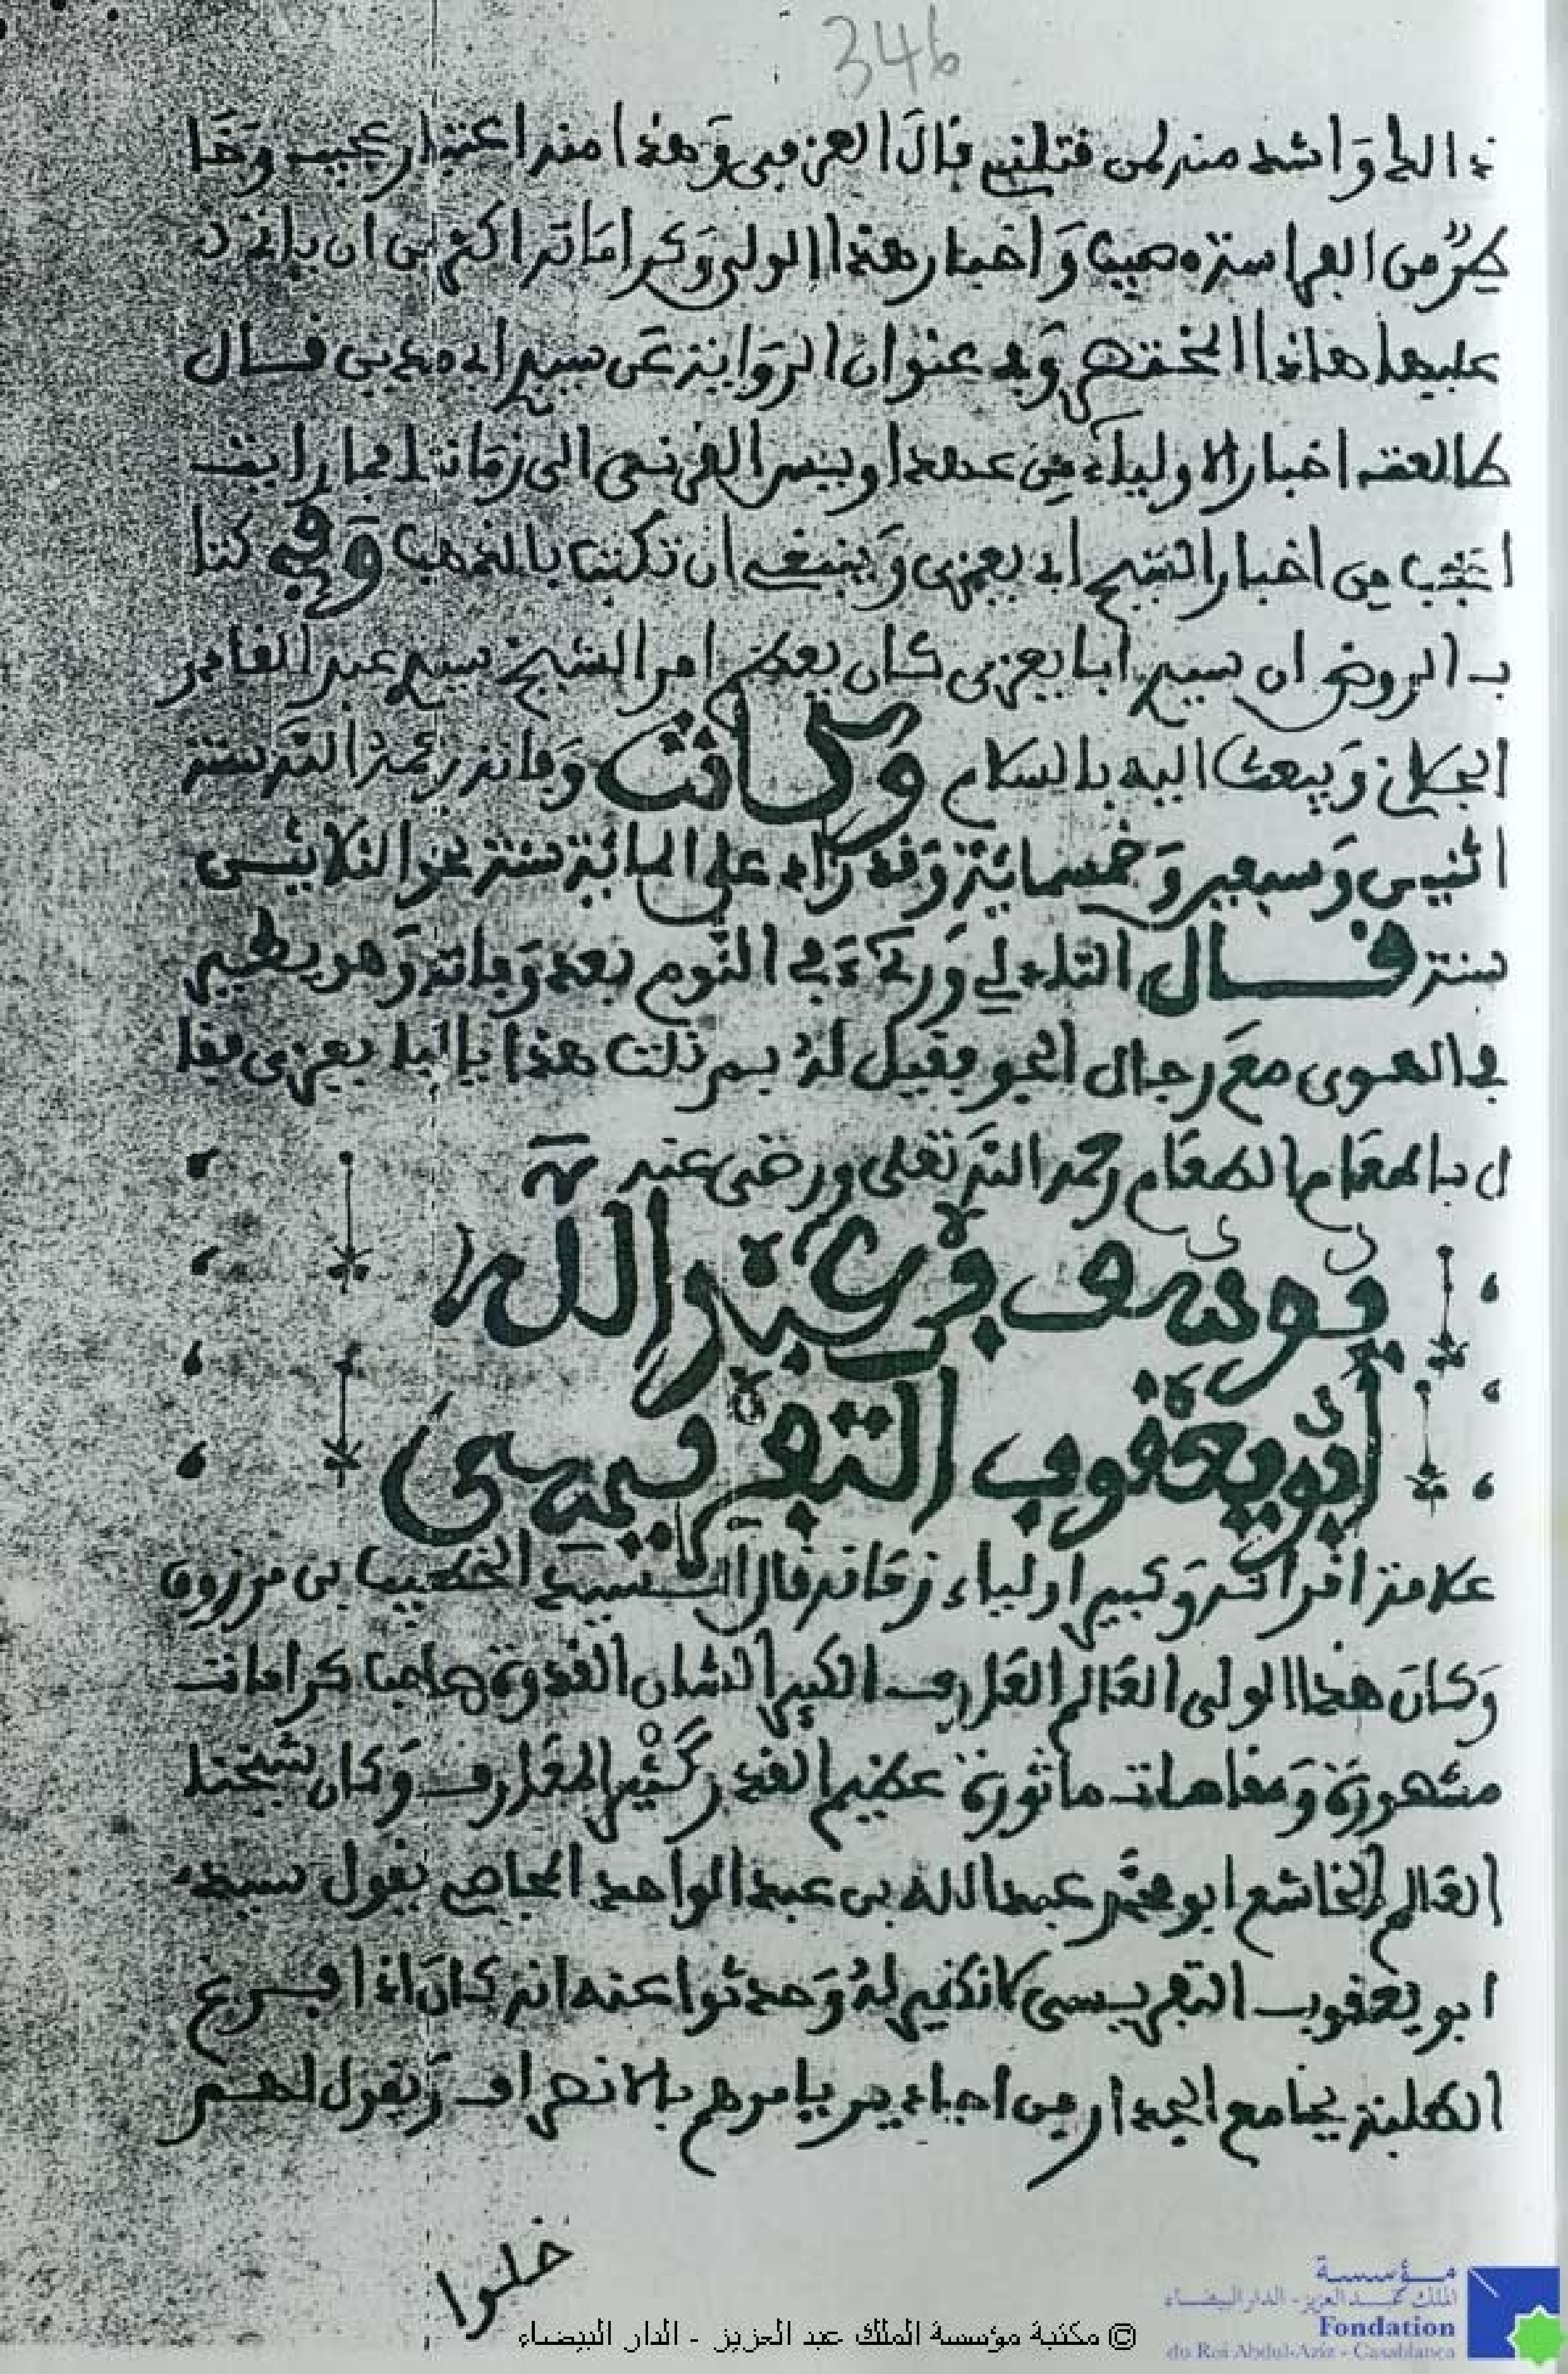 346
ذالك واشد منه لمن فتلني قال العزفي وهذا منه اعتبار عجيب وخا
طر من الفراسة مصيب واخبار هذا الولي وكراماته اكثر من ان ياتي
عليها هاذا المختصر وفي عنوان الرواية عن سيدي ابي مدين قال
طالعت اخبار الاولياء من عهد اويس القرني الى زماننا فما رايت
اعجب من اخبار الشيخ ابي يعزى وينبغي ان تكتب بالذهب وفيه كتا
ب الروض ان سيدي ابا يعزى كان يعظم امر الشيخ سيدي عبد القادر
الجيلاني ويبعث اليه بالسلام وكانت وفاته رحمه الله سنة
اثنين وسبعين وخمسمائة وقد زاد على المائة سنة نحو الثلاثين
سنة قال التادلي ورئ في النوم بعد وفاته وهو يطير
في الهوى مع رجال الجو فقيل له بم نلت هذا يا ابا يعزى فقا
ل باطعام الطعام رحمه الله تعلى ورضى عنه
يوسف بن عبد الله
ابو يعقوب التفريسي
علامة افرانه وكبير اولياء زمانه قال الشيخ الخطيب ابن مرزوق
وكان هذا الولي العالم العارف الكبير الشان القدوة صاحب كرامات
مشهورة ومقامات ماثورة عظيم القدر كثير المعارف وكان شيخنا
العالم الخاشع ابو محمد عبد الله بن عبد الواحد المجاصي يقول سيدي
ابو يعقوب التفريسي لا نظير له وحدثوا عنه انه كان اذا فرغ
الطلبة بجامع الجدار من احبابه يامرهم بالانصراف ويقول لهم
خلوا
© مكتبة مؤسسة الملك عبد العزيز - الدار البيضاء
مؤسسة
الملك عبد العزيز - الدار البيضاء
Fondation
du Roi Abdul-Aziz - Casablanca